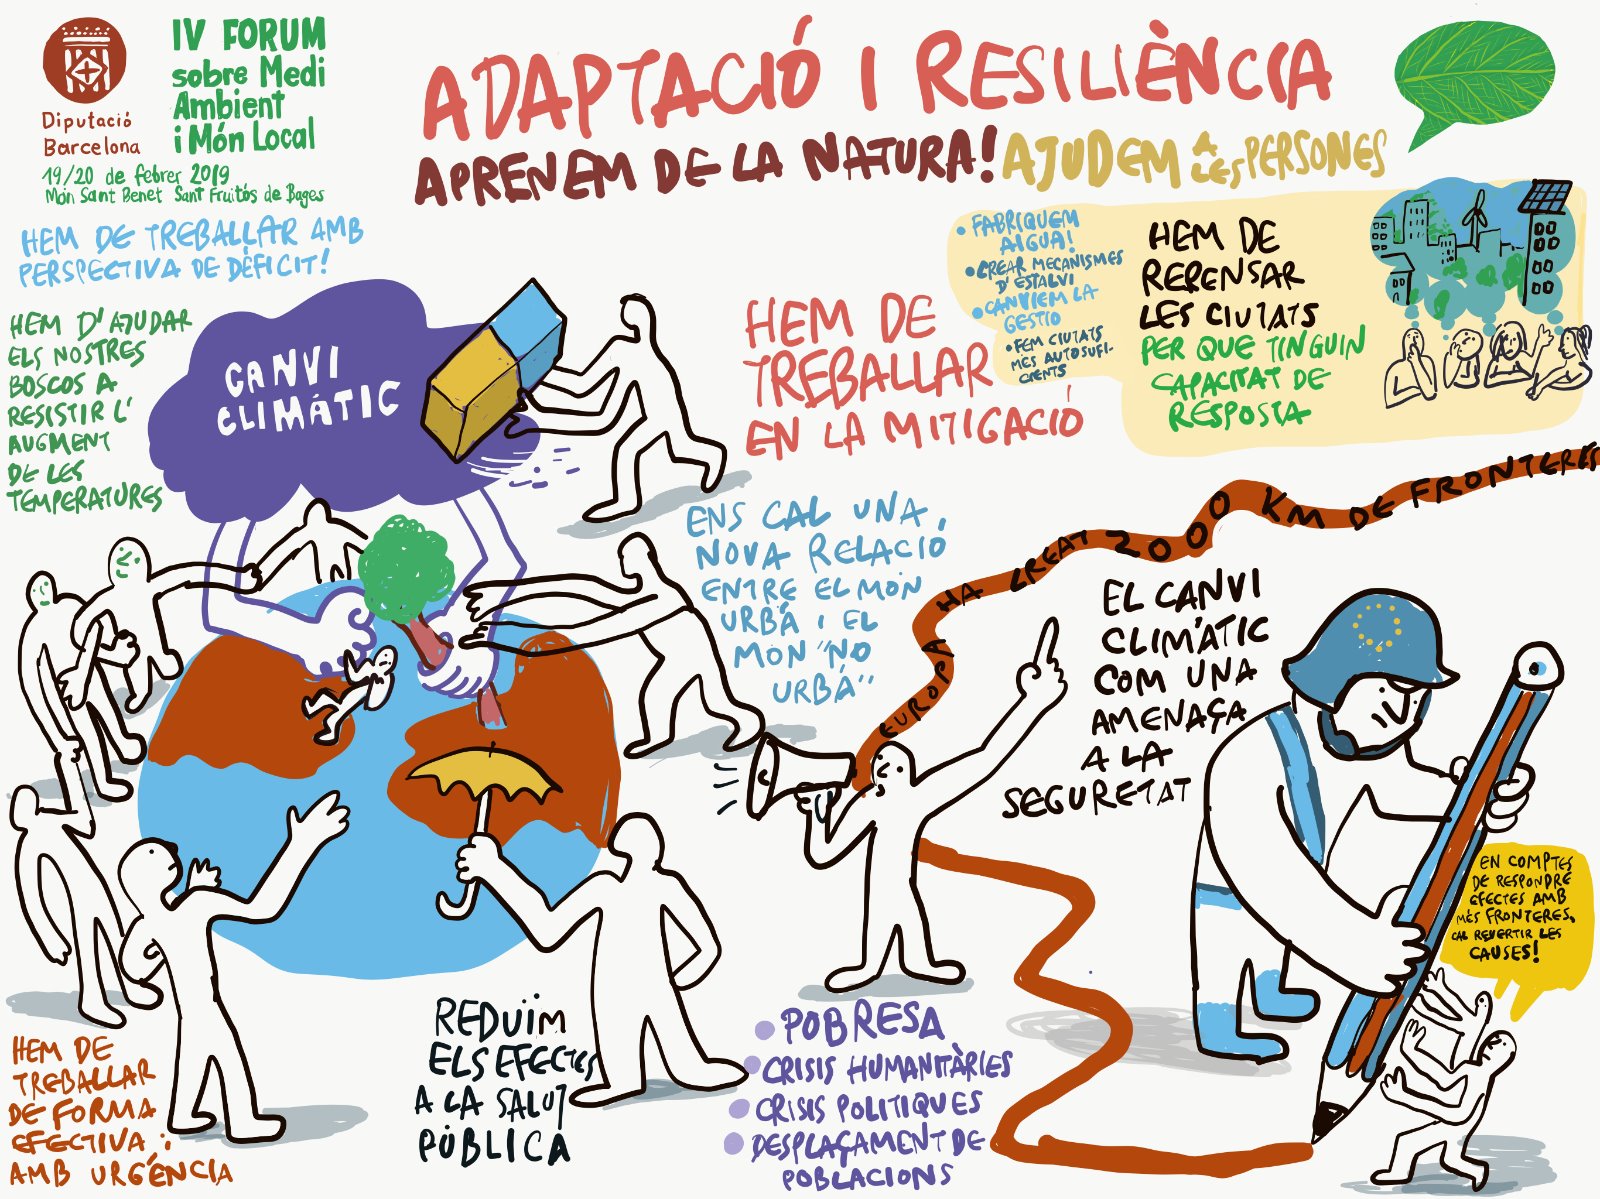 Diputació
Barcelona
IV FORUM
sobre Medi
Ambient
i Món Local
19/20 de febrer 2019
Món Sant Benet Sant Fruitós de Bages
ADAPTACIÓ I RESILIÈNCIA
APRENEM DE LA NATURA! AJUDEM A LES PERSONES
HEM DE TREBALLAR AMB
PERSPECTIVA DE DÈFICIT!
HEM D'AJUDAR
ELS NOSTRES
BOSCOS A
RESISTIR L'
AUGMENT
DE LES
TEMPERATURES
CANVI
CLIMÀTIC
HEM DE
TREBALLAR
EN LA MITIGACIÓ
• FABRIQUEM
AIGUA!
• CREAR MECANISMES
D'ESTALVI
• CANVIEM LA
GESTIO
• FEM CIUTATS
MÉS AUTOSUFI-
CIENTS
HEM DE
REPENSAR
LES CIUTATS
PER QUE TINGUIN
CAPACITAT DE
RESPOSTA
ENS CAL UNA
NOVA RELACIÓ
ENTRE EL MÓN
URBÀ I EL
MÓN "NO
URBÀ"
EUROPA HA CREAT 2000 KM DE FRONTERES
EL CANVI
CLIMÀTIC
COM UNA
AMENAÇA
A LA
SEGURETAT
EN COMPTES
DE RESPONDRE
EFECTES AMB
MÉS FRONTERES,
CAL REVERTIR LES
CAUSES!
HEM DE
TREBALLAR
DE FORMA
EFECTIVA i
AMB URGÈNCIA
REDUïM
ELS EFECTES
A LA SALUT
PÚBLICA
• POBRESA
• CRISIS HUMANITÀRIES
• CRISIS POLITIQUES
• DESPLAÇAMENT DE
POBLACIONS